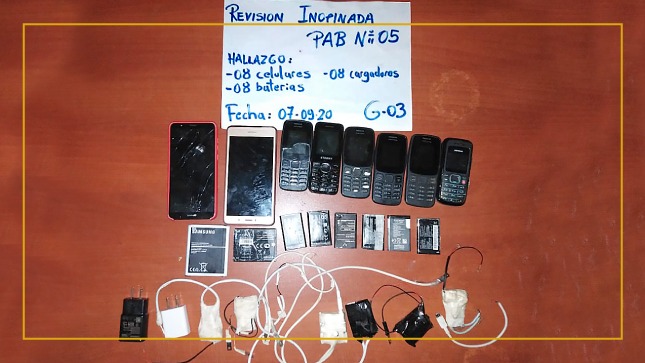 REVISION INOPINADA
PAB Nº 05
HALLAZGO:
-08 celulares -08 cargadores
-08 baterias
Fecha: 07-09-20 G-03
SAMSUNG